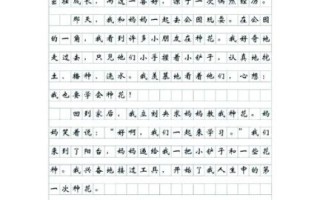 那天，我和妈妈一起去公园玩耍。在公园
的一角，我看到许多小朋友在种花。我好奇地
走过去，只见他们小手握着小铲子，认真地挖
土、播种、浇水。我羡慕地看着他们，心想：
我也要学会种花！
回到家后，我立刻央求妈妈教我种花。妈妈
笑着说：“好啊，我们一起来学习。”我们
来到了阳台，妈妈递给我一把小铲子和一些花
种。我兴奋地接过工具，开始了我人生中的第
一次种花。